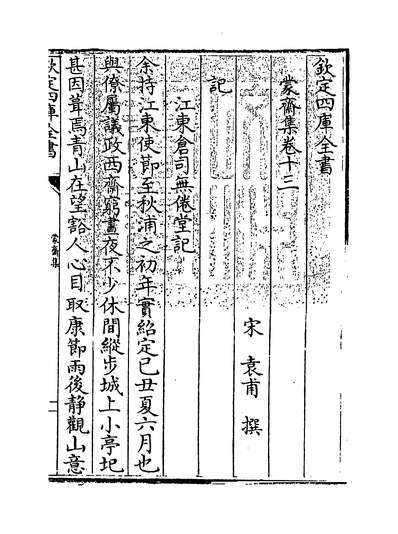 欽定四庫全書
蒙齋集卷十三
宋 袁甫 撰
記
江東倉司無倦堂記
余持江東使節至秋浦之初年實紹定己丑夏六月也
與僚屬議政西齋窮晝夜不少休間縱步城上小亭圮
甚因葺焉青山在望豁人心目取康節雨後靜觀山意
欽定四庫全書
蒙齋集